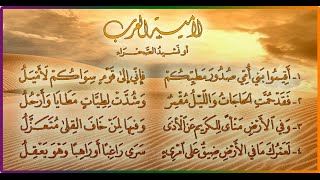 لامية العرب
أو نشيد الصحراء
١- أقيموا بني أمي صدور مطيكم فإني إلى قوم سواكم لأميل
٢- فقد حمت الحاجات والليل مقمر وشدت لطيات مطايا وأرحل
٣- وفي الأرض منأى للكريم عن الأذى وفيها لمن خاف القلى متعزل
٤- لعمرك ما في الأرض ضيق على امرئ سرى راغبا أو راهبا وهو يعقل